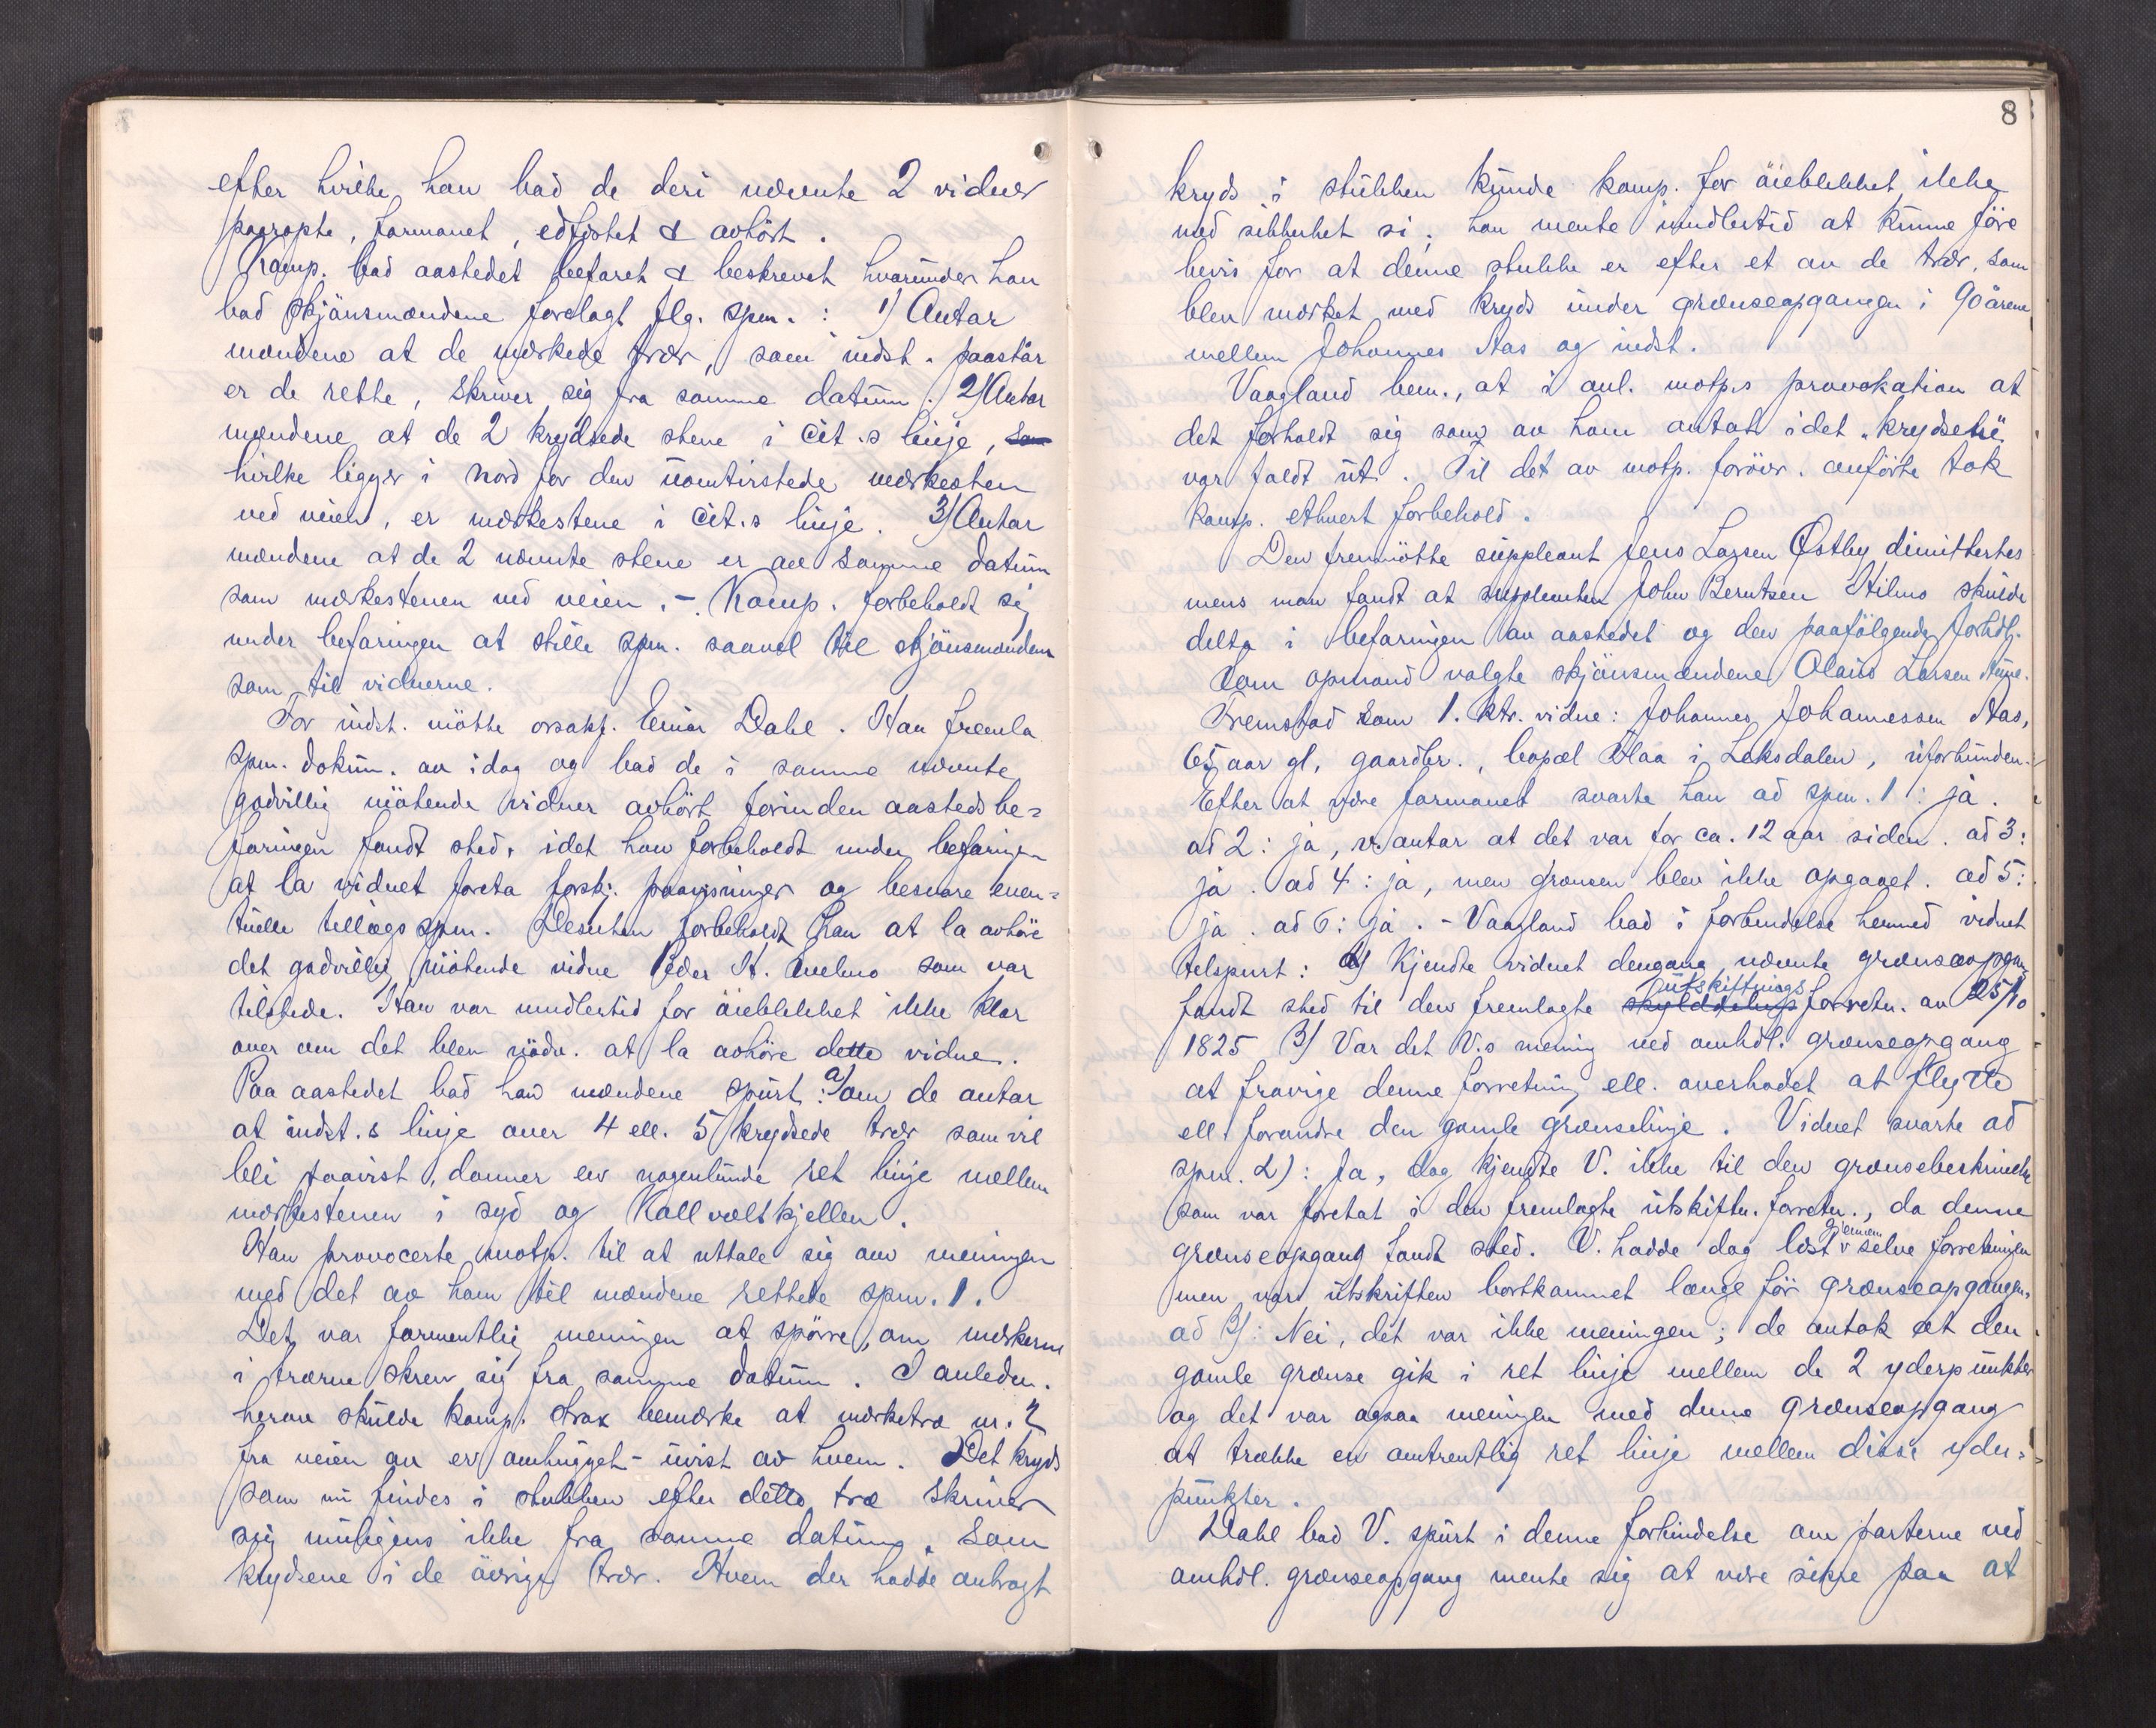 efter hvilke han bad de deri nævnte 2 vidner
paaropte, formanet, edfæstet & avhört.
Komp. bad aastedet befaret & beskrevet hvorunder han
bad skjönsmændene forelagt flg. spm.: 1) Antar
mændene at de mærkede trær, som indst. paastår
er de rette, skriver sig fra samme datum. 2) Antar
mændene at de 2 krydsede stene i cit.s linje, som
hvilke ligger i nord for den uomtvistede merkesten
ved veien, er mærkestene i cit.s linje. 3) Antar
mændene at de 2 nævnte stene er av samme datum
som mærkestenen ved veien. - Komp. forbeholdt sig
under befaringen at stille spm. saavel til skjönsmændene
som til vidnerne.
For indst. mötte orsakf. Einar Dahl. Han fremla
spm. dokum. av idag og bad de i samme nævnte
godvillig mötende vidner avhört forinden aastedsbe=
faringen fandt sted, idet han forbeholdt under befaringen
at la vidnet foreta forskj. paavisninger og besvare even=
tuelle tillægsspm. Desuten forbeholdt han at la avhöre
det godvillig mötende vidne Peder H. Avelmo som var
tilstede. Han var imidlertid for öieblikket ikke klar
over om det blev nödv. at la avhöre dette vidne.
Paa aastedet bad han mændene spurt: a) om de antar
at indst.s linje over 4 ell. 5 krydsede trær som vil
bli paavist, danner en nogenlunde ret linje mellem
mærkestenen i syd og Kallvælskjellen.
Han provocerte motp. til at uttale sig om meningen
med det av ham til mændene rettede spm. 1.
Det var formentlig meningen at spörre, om mærkerne
i trærne skrev sig fra samme datum. I anledn.
herav skulde komp. strax bemærke at mærketræ nr. 2
fra veien av er omhugget - uvist av hvem. Det kryds
som nu findes i stubben efter dette træ skriver
sig muligens ikke fra samme datum, som
krydsene i de övrige trær. Hvem der hadde anbragt
8
kryds i stubben kunde komp. for öieblikket ikke
med sikkerhet si; han mente imidlertid at kunne före
bevis for at denne stubbe er efter et av de trær, som
blev mærket med kryds under grænseopgangen i 90 årene
mellem Johannes Aas og indst.
Vaagland bem., at i anl. motp.s provokation at
det forholdt sig som av ham antat idet "krydsene"
var faldt ut. Til det av motp. forövr. anförte tok
komp. ethvert forbehold.
Den fremmötte suppleant Jens Larsen Østby dimittertes
mens man fandt at suppleanten John Berntsen Hilmo skulde
delta i befaringen av aastedet og den paafölgende forhdl.
Som opmand valgte skjönsmændene Olaus Larsen
Fremstod som 1. ktr. vidne: Johannes Johannessen Aas,
65 aar gl, gaardbr., bopæl Blaa i Leksdalen, uforbunden.
Efter at være formanet svarte han ad spm. 1: ja.
ad 2: ja, v. antar at det var for ca. 12 aar siden. ad 3:
ja. ad 4: ja, men grænsen blev ikke opgaaet. ad 5:
ja. ad 6: ja. - Vaagland bad i forbindelse hermed vidnet
tilspurt: 2) Kjendte vidnet dengang nævnte grænseopgang
fandt sted til den fremlagte skylddelings utskiftningsforretn. av 25/10
1825 3) Var det V.s mening ved omhdl. grænseopgang
at fravige denne forretning ell. overhodet at flytte
ell. forandre den gamle grænselinje. Vidnet svarte ad
spm. 2): Ja, dog kjendte V. ikke til den grænsebeskrivelse
som var foretat i den fremlagte utskiftn. forretn., da denne
grænseopgang fandt sted. V. hadde dog læst gjennem selve forretningen
men var utskriften bortkommet længe för grænseopgangen.
ad 3): Nei, det var ikke meningen; de antok at den
gamle grænse gik i ret linje mellem de 2 yderpunkter
og det var ogsaa meningen med denne grænseopgang
at trække en omtrentlig ret linje mellem disse yder=
punkter.
Dahl bad V. spurt i denne forbindelse om parterne ved
omhdl. grænseopgang mente sig at være sikre paa at